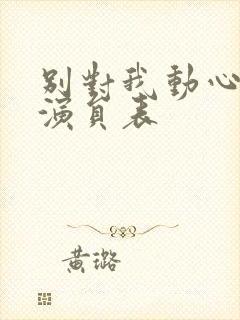 別對我動心
演員表
黃璐